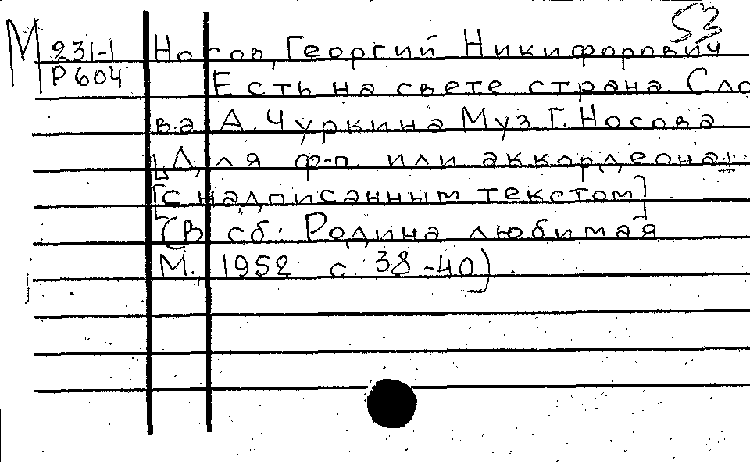 53
М 231-1 Носов, Георгий Никифорович
Р 604 Есть на свете страна Сло
ва А. Чуркина Муз. Г. Носова
[Для ф-п. или аккордеона:
[с надписанным текстом]
(В сб: Родина любимая
М., 1952 с 38-40).